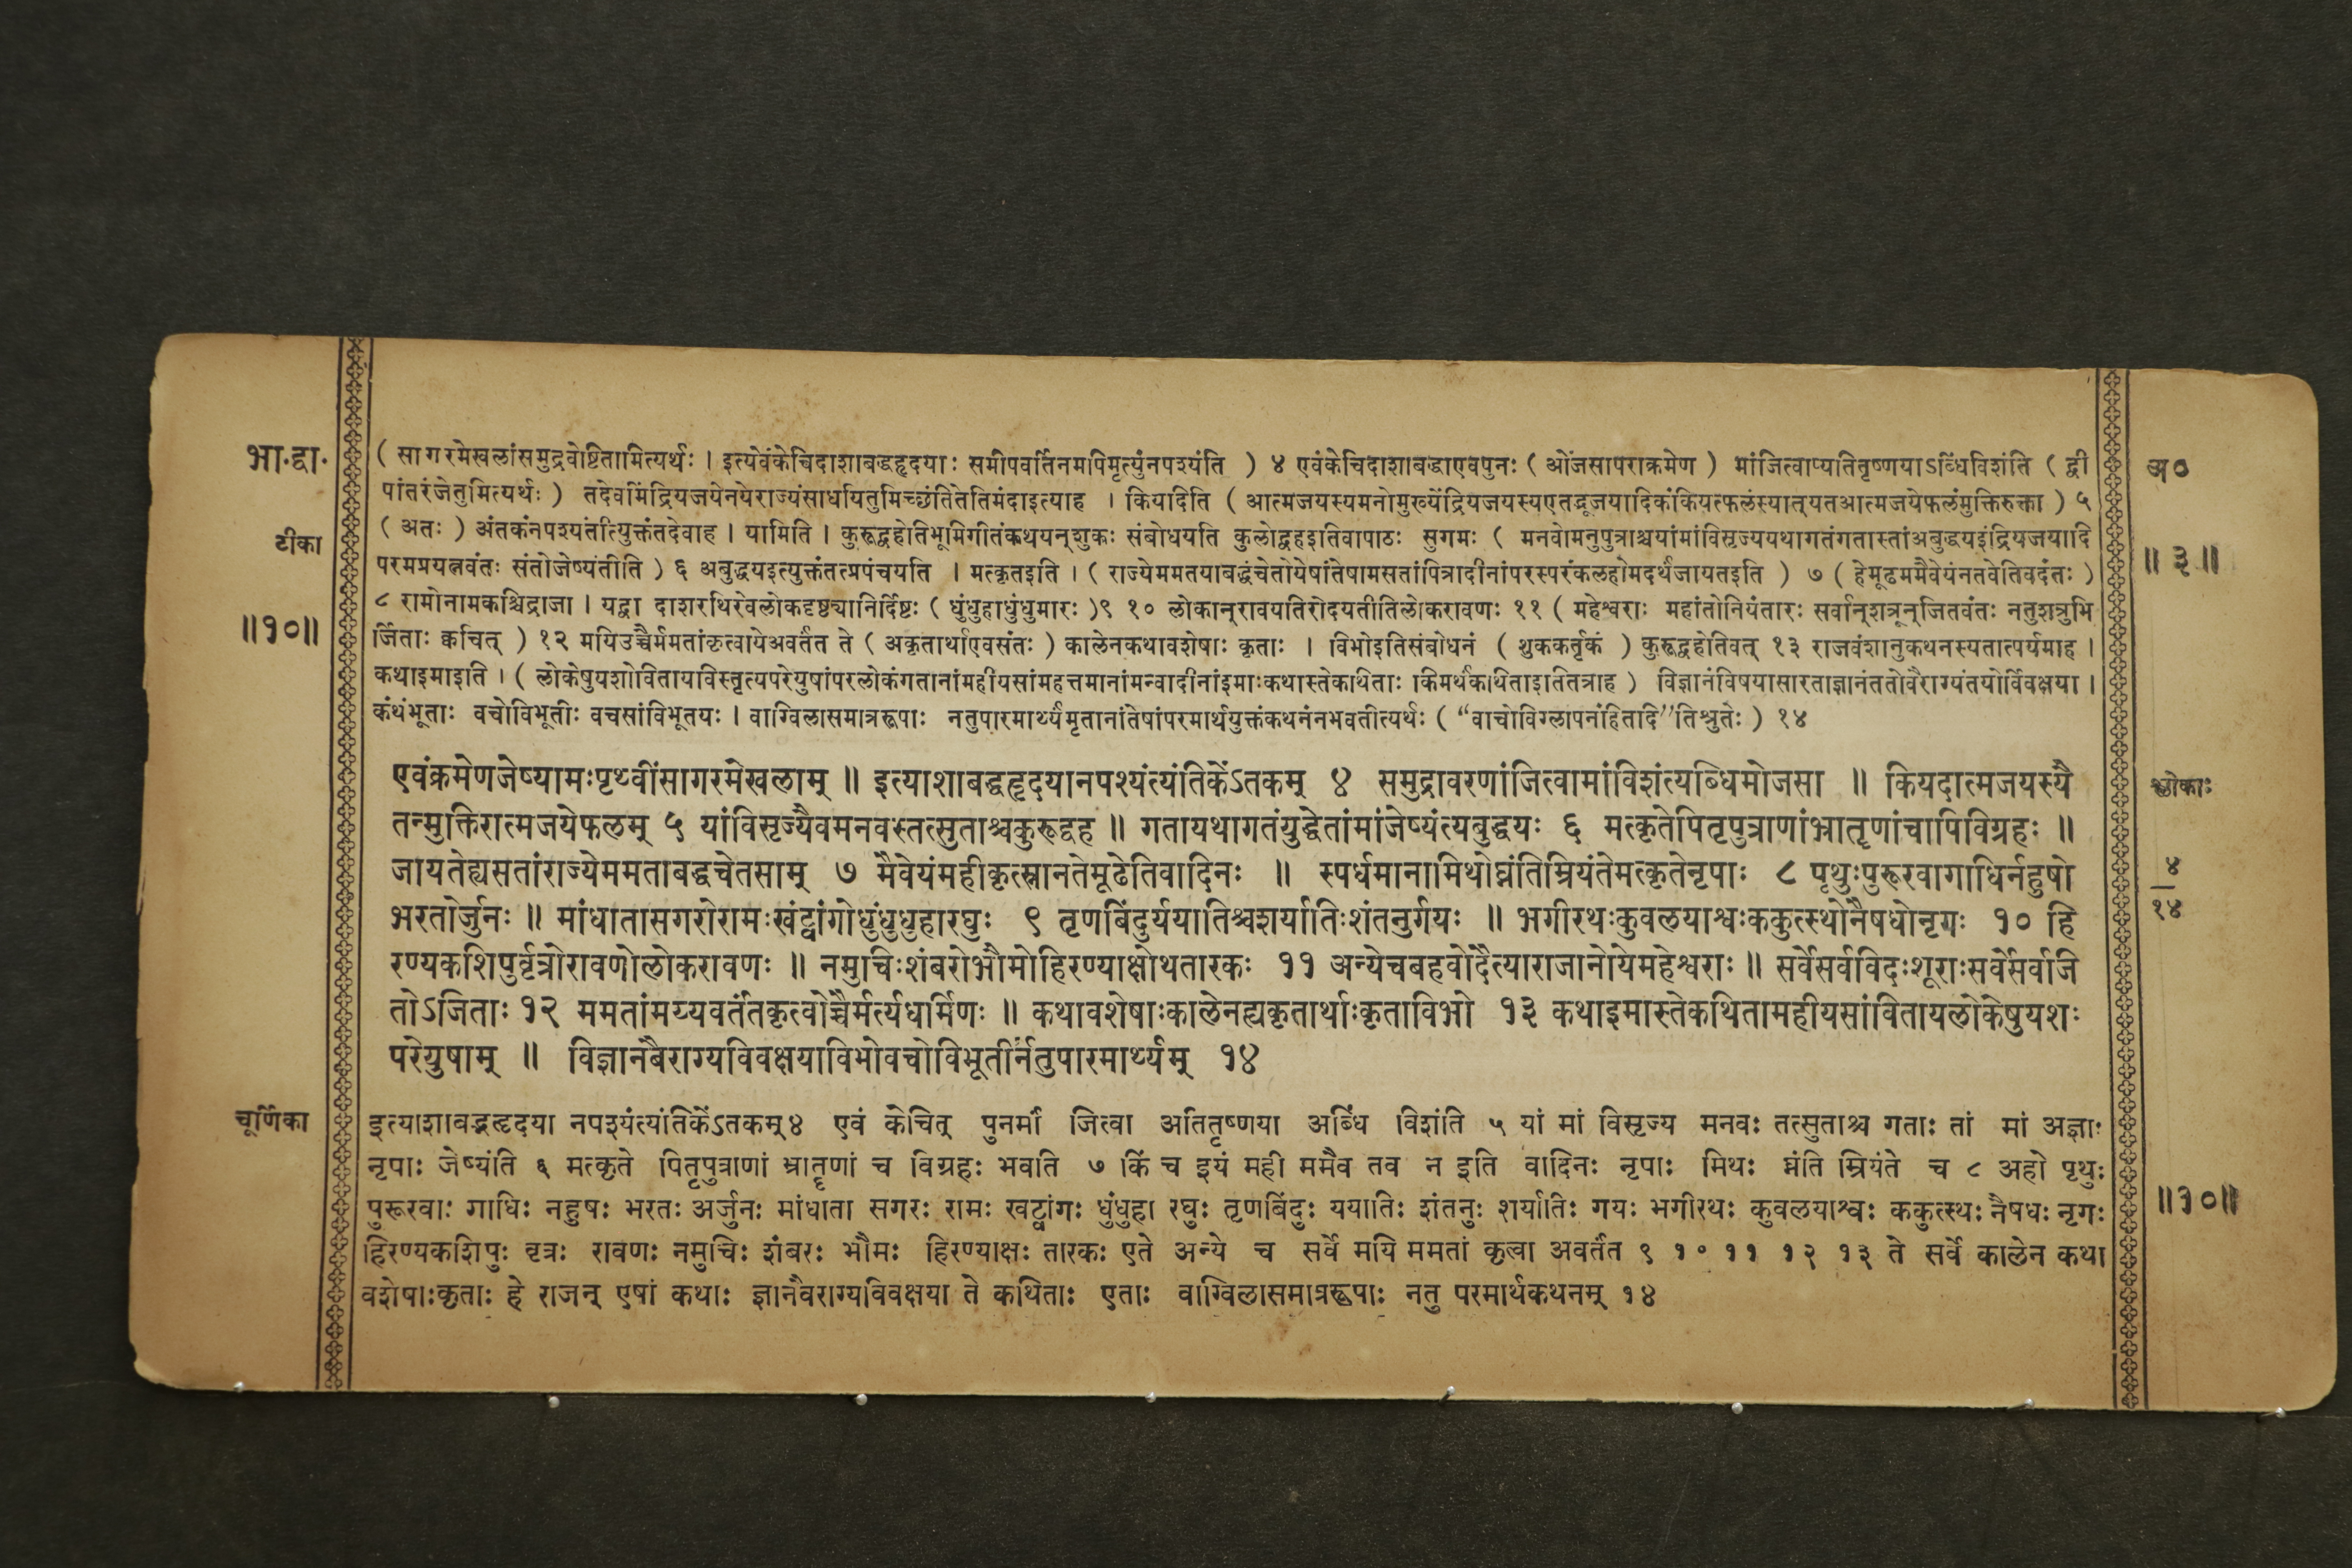 भा.द्वा.
टीका
॥१०॥
( सागरमेखलांसमुद्रवेष्टितामित्यर्थः । इत्येवंकेचिदाशाबद्धहृदयाः समीपवर्तिनमपिमृत्युंनपश्यंति ) ४ एवंकेचिदाशाबद्धाएवपुनः ( ओजसापराक्रमेण ) मांजित्वाप्यतितृष्णयाऽब्धिंविशंति ( द्वी
पांतरंजेतुमित्यर्थः ) तदेवमिंद्रियजयेनयेराज्यंसाधयितुमिच्छंतितेतिमंदाइत्याह । कियदिति ( आत्मजयस्यमनोमुख्येंद्रियजयस्यएतद्भूजयादिकंकियत्फलंस्यात्यतआत्मजयेफलंमुक्तिरुक्ता ) ५
( अतः ) अंतकंनपश्यतंतीत्युक्तंतदेवाह । यामिति । कुरूद्वहेतिभूमिगीतंकथयन्शुकः संबोधयति कुलोद्वहइतिवापाठः सुगमः ( मनवोमनुपुत्राश्चयांमांविसृज्ययथागतंगतास्तांअबुद्धयइंद्रियजयादि
परमप्रयत्नवंतः संतोजेष्यंतीति ) ६ अबुद्धयइत्युक्तंतत्प्रपंचयति । मत्कृतइति । ( राज्येममतयाबद्धंचेतोयेषांतेषामसतांपित्रादीनांपरस्परंकलहोमदर्थंजायतइति ) ७ ( हेमूढममैवेयंनतवेतिवदंतः )
८ रामोनामकश्चिद्राजा । यद्वा दाशरथिरेवलोकदृष्ट्यानिर्दिष्टः ( धुंधुहाधुंधुमारः )९ १० लोकान्रावयतिरोदयतीतिलोकरावणः ११ ( महेश्वराः महांतोनियंतारः सर्वान्शत्रून्जितवंतः नतुशत्रुभि
र्जिताः क्वचित् ) १२ मयिउच्चैर्ममतांकृत्वायेअवर्तत ते ( अकृतार्थाएवसंतः ) कालेनकथावशेषाः कृताः । विभोइतिसंबोधनं ( शुककर्तृकं ) कुरूद्वहेतिवत् १३ राजवंशानुकथनस्यतात्पर्यमाह ।
कथाइमाइति । ( लोकेषुयशोवितायविस्तृत्यपरेयुषांपरलोकंगतानांमहीयसांमहत्तमानांमन्वादीनांइमाःकथास्तेकथिताः किमर्थंकथिताइतितत्राह ) विज्ञानंविषयासारताज्ञानंततोवैराग्यंतयोर्विवक्षया ।
कंथंभूताः वचोविभूतीः वचसांविभूतयः । वाग्विलासमात्ररूपाः नतुपारमार्थ्यंमृतानांतेषांपरमार्थयुक्तंकथनंनभवतीत्यर्थः ( “वाचोविग्लापनंहितादि”तिश्रुतेः ) १४
एवंक्रमेणजेष्यामःपृथ्वींसागरमेखलाम् ॥ इत्याशाबद्धहृदयानपश्यंत्यंतिकेंऽतकम् ४ समुद्रावरणांजित्वामांविशंत्यब्धिमोजसा ॥ कियदात्मजयस्यै
तन्मुक्तिरात्मजयेफलम् ५ यांविसृज्यैवमनवस्तत्सुताश्चकुरूद्वह ॥ गतायथागतंयुद्धेतांमांजेष्यंत्यबुद्धयः ६ मत्कृतेपितृपुत्राणांभ्रातृणांचापिविग्रहः ॥
जायतेह्यसतांराज्येममताबद्धचेतसाम् ७ मैवेयंमहीकृत्स्नानतेमूढेतिवादिनः ॥ स्पर्धमानामिथोघ्नंतिम्रियंतेमत्कृतेनृपाः ८ पृथुःपुरूरवागाधिर्नहुषो
भरतोर्जुनः ॥ मांधातासगरोरामःखंट्वांगोधुंधुधुहारघुः ९ तृणबिंदुर्ययातिश्चशर्यातिःशंतनुर्गयः ॥ भगीरथःकुवलयाश्वःककुत्स्थोनैषधोनृगः १० हि
रण्यकशिपुर्वृत्रोरावणोलोकरावणः ॥ नमुचिःशंबरोभौमोहिरण्याक्षोथतारकः ११ अन्येचबहवोदैत्याराजानोयेमहेश्वराः ॥ सर्वेसर्वविदःशूराःसर्वेसर्वजि
तोऽजिताः १२ ममतांमय्यवर्तंतकृत्वोच्चैर्मर्त्यधर्मिणः ॥ कथावशेषाःकालेनह्यकृतार्थाःकृताविभो १३ कथाइमास्तेकथितामहीयसांवितायलोकेषुयशः
परेयुषाम् ॥ विज्ञानवैराग्यविवक्षयाविभोवचोविभूतीर्नतुपारमार्थ्यम् १४
चूर्णिका
इत्याशाबद्धहृदया नपश्यंत्यंतिकेंऽतकम्४ एवं केचित् पुनर्मां जित्वा अतितृष्णया अब्धिं विशंति ५ यां मां विसृज्य मनवः तत्सुताश्च गताः तां मां अज्ञाः
नृपाः जेष्यंति ६ मत्कृते पितृपुत्राणां भ्रातॄणां च विग्रहः भवति ७ किं च इयं मही ममैव तव न इति वादिनः नृपाः मिथः घ्नंति म्रियंते च ८ अहो पृथुः
पुरूरवाः गाधिः नहुषः भरतः अर्जुनः मांधाता सगरः रामः खट्वांगः धुंधुहा रघुः तृणबिंदुः ययातिः शंतनुः शर्यातिः गयः भगीरथः कुवलयाश्वः ककुत्स्थः नैषधः नृगः
हिरण्यकशिपुः वृत्रः रावणः नमुचिः शंबरः भौमः हिरण्याक्षः तारकः एते अन्ये च सर्वे मयि ममतां कृत्वा अवर्तंत ९ १० ११ १२ १३ ते सर्वे कालेन कथा
वशेषाःकृताः हे राजन् एषां कथाः ज्ञानवैराग्यविवक्षया ते कथिताः एताः वाग्विलासमात्ररूपाः नतु परमार्थकथनम् १४
अ०
॥ ३ ॥
श्लोकाः
४
१४
॥१०॥